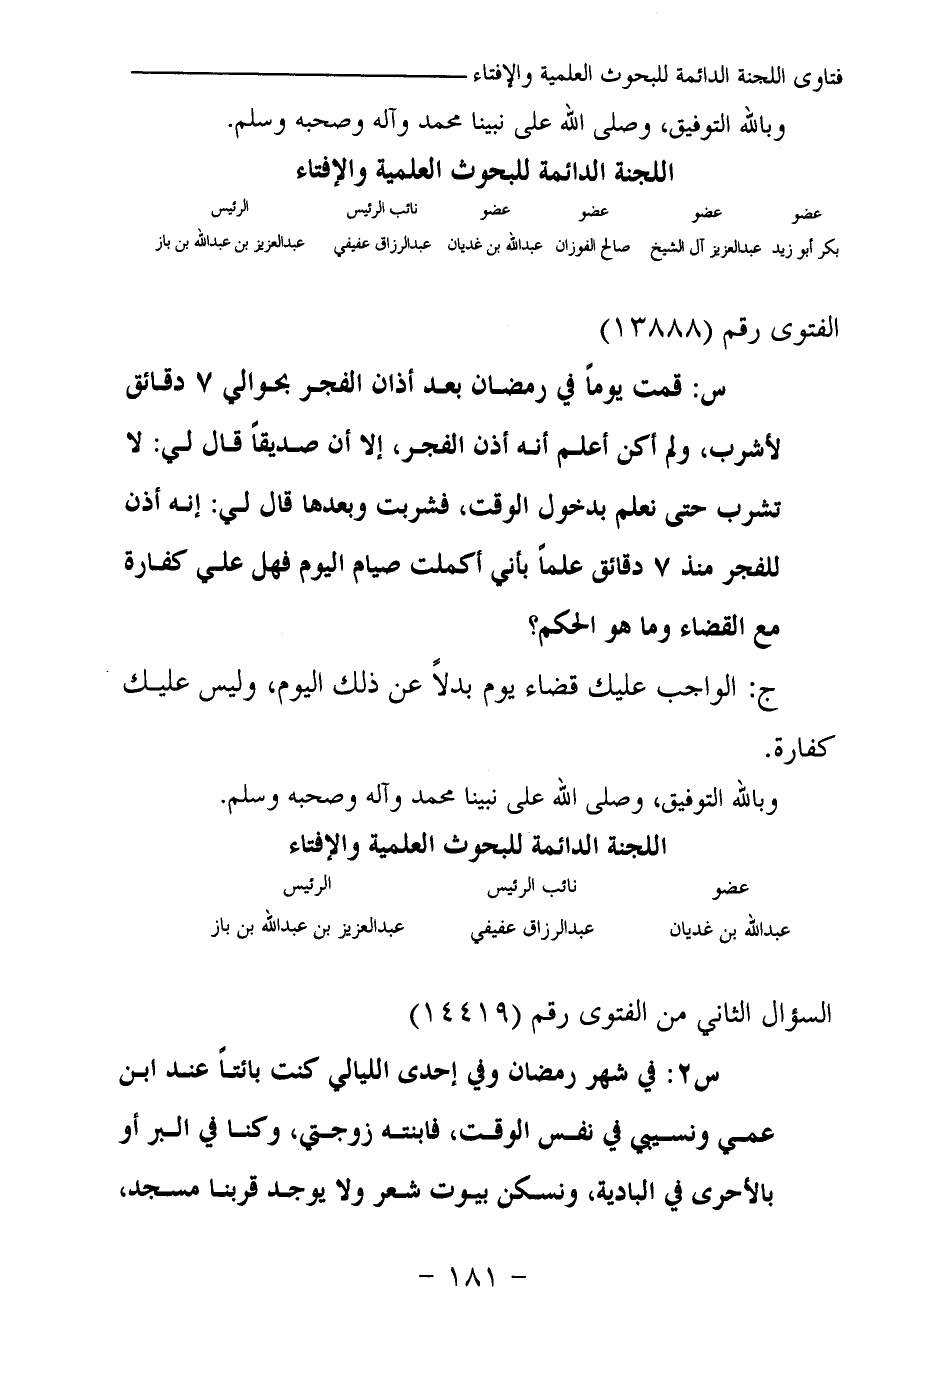 فتاوى اللجنة الدائمة للبحوث العلمية والإفتاء
وبالله التوفيق، وصلى الله على نبينا محمد وآله وصحبه وسلم.
اللجنة الدائمة للبحوث العلمية والإفتاء
عضو عضو عضو عضو نائب الرئيس الرئيس
بكر أبو زيد عبدالعزيز آل الشيخ صالح الفوزان عبدالله بن غديان عبدالرزاق عفيفي عبدالعزيز بن عبدالله بن باز
الفتوى رقم (١٣٨٨٨)
س: قمت يوماً في رمضان بعد أذان الفجر بحوالي ٧ دقائق
لأشرب، ولم أكن أعلم أنه أذن الفجر، إلا أن صديقاً قال لي: لا
تشرب حتى نعلم بدخول الوقت، فشربت وبعدها قال لي: إنه أذن
للفجر منذ ٧ دقائق علماً بأني أكملت صيام اليوم فهل علي كفارة
مع القضاء وما هو الحكم؟
ج: الواجب عليك قضاء يوم بدلاً عن ذلك اليوم، وليس عليك
كفارة.
وبالله التوفيق، وصلى الله على نبينا محمد وآله وصحبه وسلم.
اللجنة الدائمة للبحوث العلمية والإفتاء
عضو نائب الرئيس الرئيس
عبدالله بن غديان عبدالرزاق عفيفي عبدالعزيز بن عبدالله بن باز
السؤال الثاني من الفتوى رقم (١٤٤١٩)
س٢: في شهر رمضان وفي إحدى الليالي كنت بائتاً عند ابن
عمي ونسيبي في نفس الوقت، فابنته زوجتي، وكنا في البر أو
بالأحرى في البادية، ونسكن بيوت شعر ولا يوجد قربنا مسجد،
- ١٨١ -